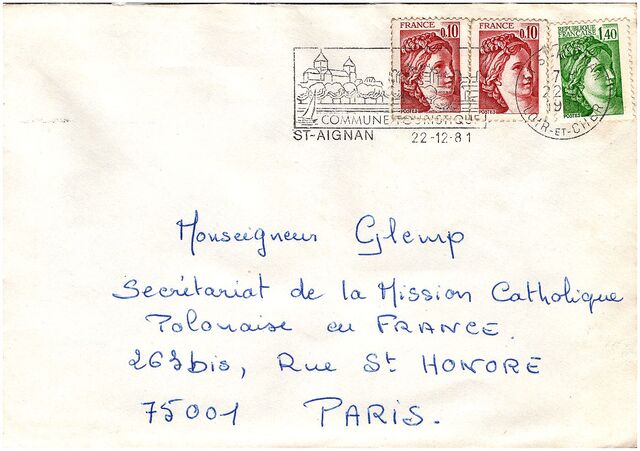 FRANCE 0,10
FRANCE 0,10
RÉPUBLIQUE FRANÇAISE 1,40
POSTES
POSTES
POSTES
COMMUNE TOURISTIQUE
ST-AIGNAN 22-12-81
LOIR-ET-CHER
Monseigneur Glemp
Secrétariat de la Mission Catholique
Polonaise en FRANCE.
263bis, Rue St HONORE
75001 PARIS.